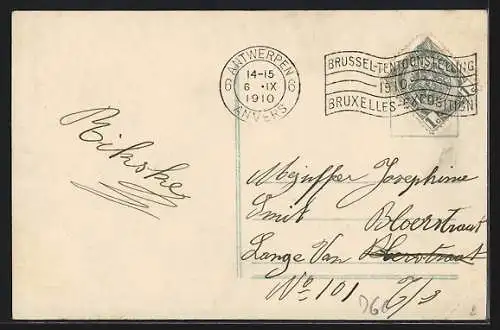 ANTWERPEN
6 6
14-15
6 IX
1910
ANVERS
BRUSSEL-TENTOONSTELLING
1910
BRUXELLES-EXPOSITION
1
Rikske
Mejuffer Josephine
Smit Bloerstraat
Lange Van Bloerstraat
No 101 E/s